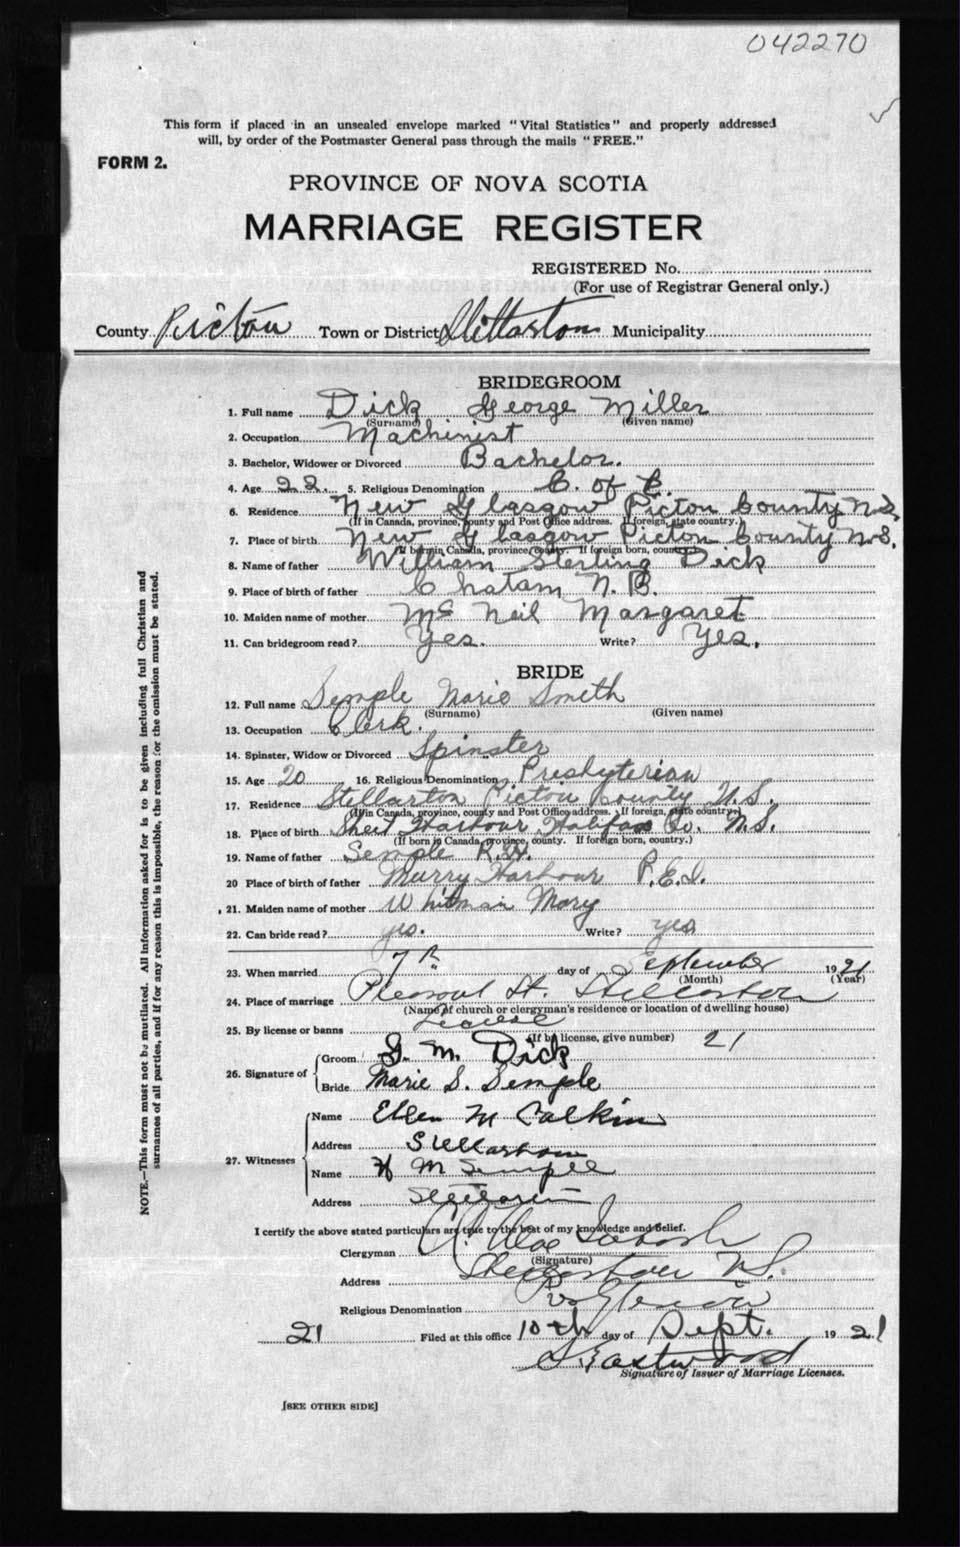 042270
This form if placed in an unsealed envelope marked "Vital Statistics" and properly addressed
will, by order of the Postmaster General pass through the mails "FREE."
FORM 2.
PROVINCE OF NOVA SCOTIA
MARRIAGE REGISTER
REGISTERED No.
(For use of Registrar General only.)
County Pictou Town or District Stellarton Municipality
BRIDEGROOM
1. Full name Dick George Miller
(Surname) (Given name)
2. Occupation Machinist
3. Bachelor, Widower or Divorced Bachelor.
4. Age 22. 5. Religious Denomination C. of E.
6. Residence New Glasgow Picton County N.S.
(If in Canada, province, county and Post Office address. If foreign, state country.)
7. Place of birth New Glasgow Picton County N.S.
(If born in Canada, province, county. If foreign born, country.)
8. Name of father William Sterling Dick
9. Place of birth of father Chatam N.B.
10. Maiden name of mother Mc Neil Margaret
11. Can bridegroom read? Yes. Write? Yes.
BRIDE
12. Full name Semple Marie Smith
(Surname) (Given name)
13. Occupation Clerk.
14. Spinster, Widow or Divorced Spinster
15. Age 20 16. Religious Denomination Presbyterian
17. Residence Stellarton Pictou County N.S.
(If in Canada, province, county and Post Office address. If foreign, state country.)
18. Place of birth Sheet Harbour Halifax Co. N.S.
(If born in Canada, province, county. If foreign born, country.)
19. Name of father Semple R.H.
20 Place of birth of father Murry Harbour P.E.I.
21. Maiden name of mother Whitman Mary
22. Can bride read? yes. Write? yes
23. When married 7th day of September 1921
(Month) (Year)
24. Place of marriage Pleasant St. Stellarton
(Name of church or clergyman's residence or location of dwelling house)
25. By license or banns License
(If by license, give number) 21
26. Signature of
Groom G. M. Dick
Bride Marie S. Semple
27. Witnesses
Name Ellen M Calkin
Address Stellarton
Name H M Semple
Address Stellarton
I certify the above stated particulars are true to the best of my knowledge and belief.
Clergyman
(Signature)
Address Stellarton N.S.
Religious Denomination
21 Filed at this office 10th day of Sept. 1921
Eastwood
Signature of Issuer of Marriage Licenses.
[SEE OTHER SIDE]
NOTE.—This form must not be mutilated. All information asked for is to be given including full Christian and
surnames of all parties, and if for any reason this is impossible, the reason for the omission must be stated.